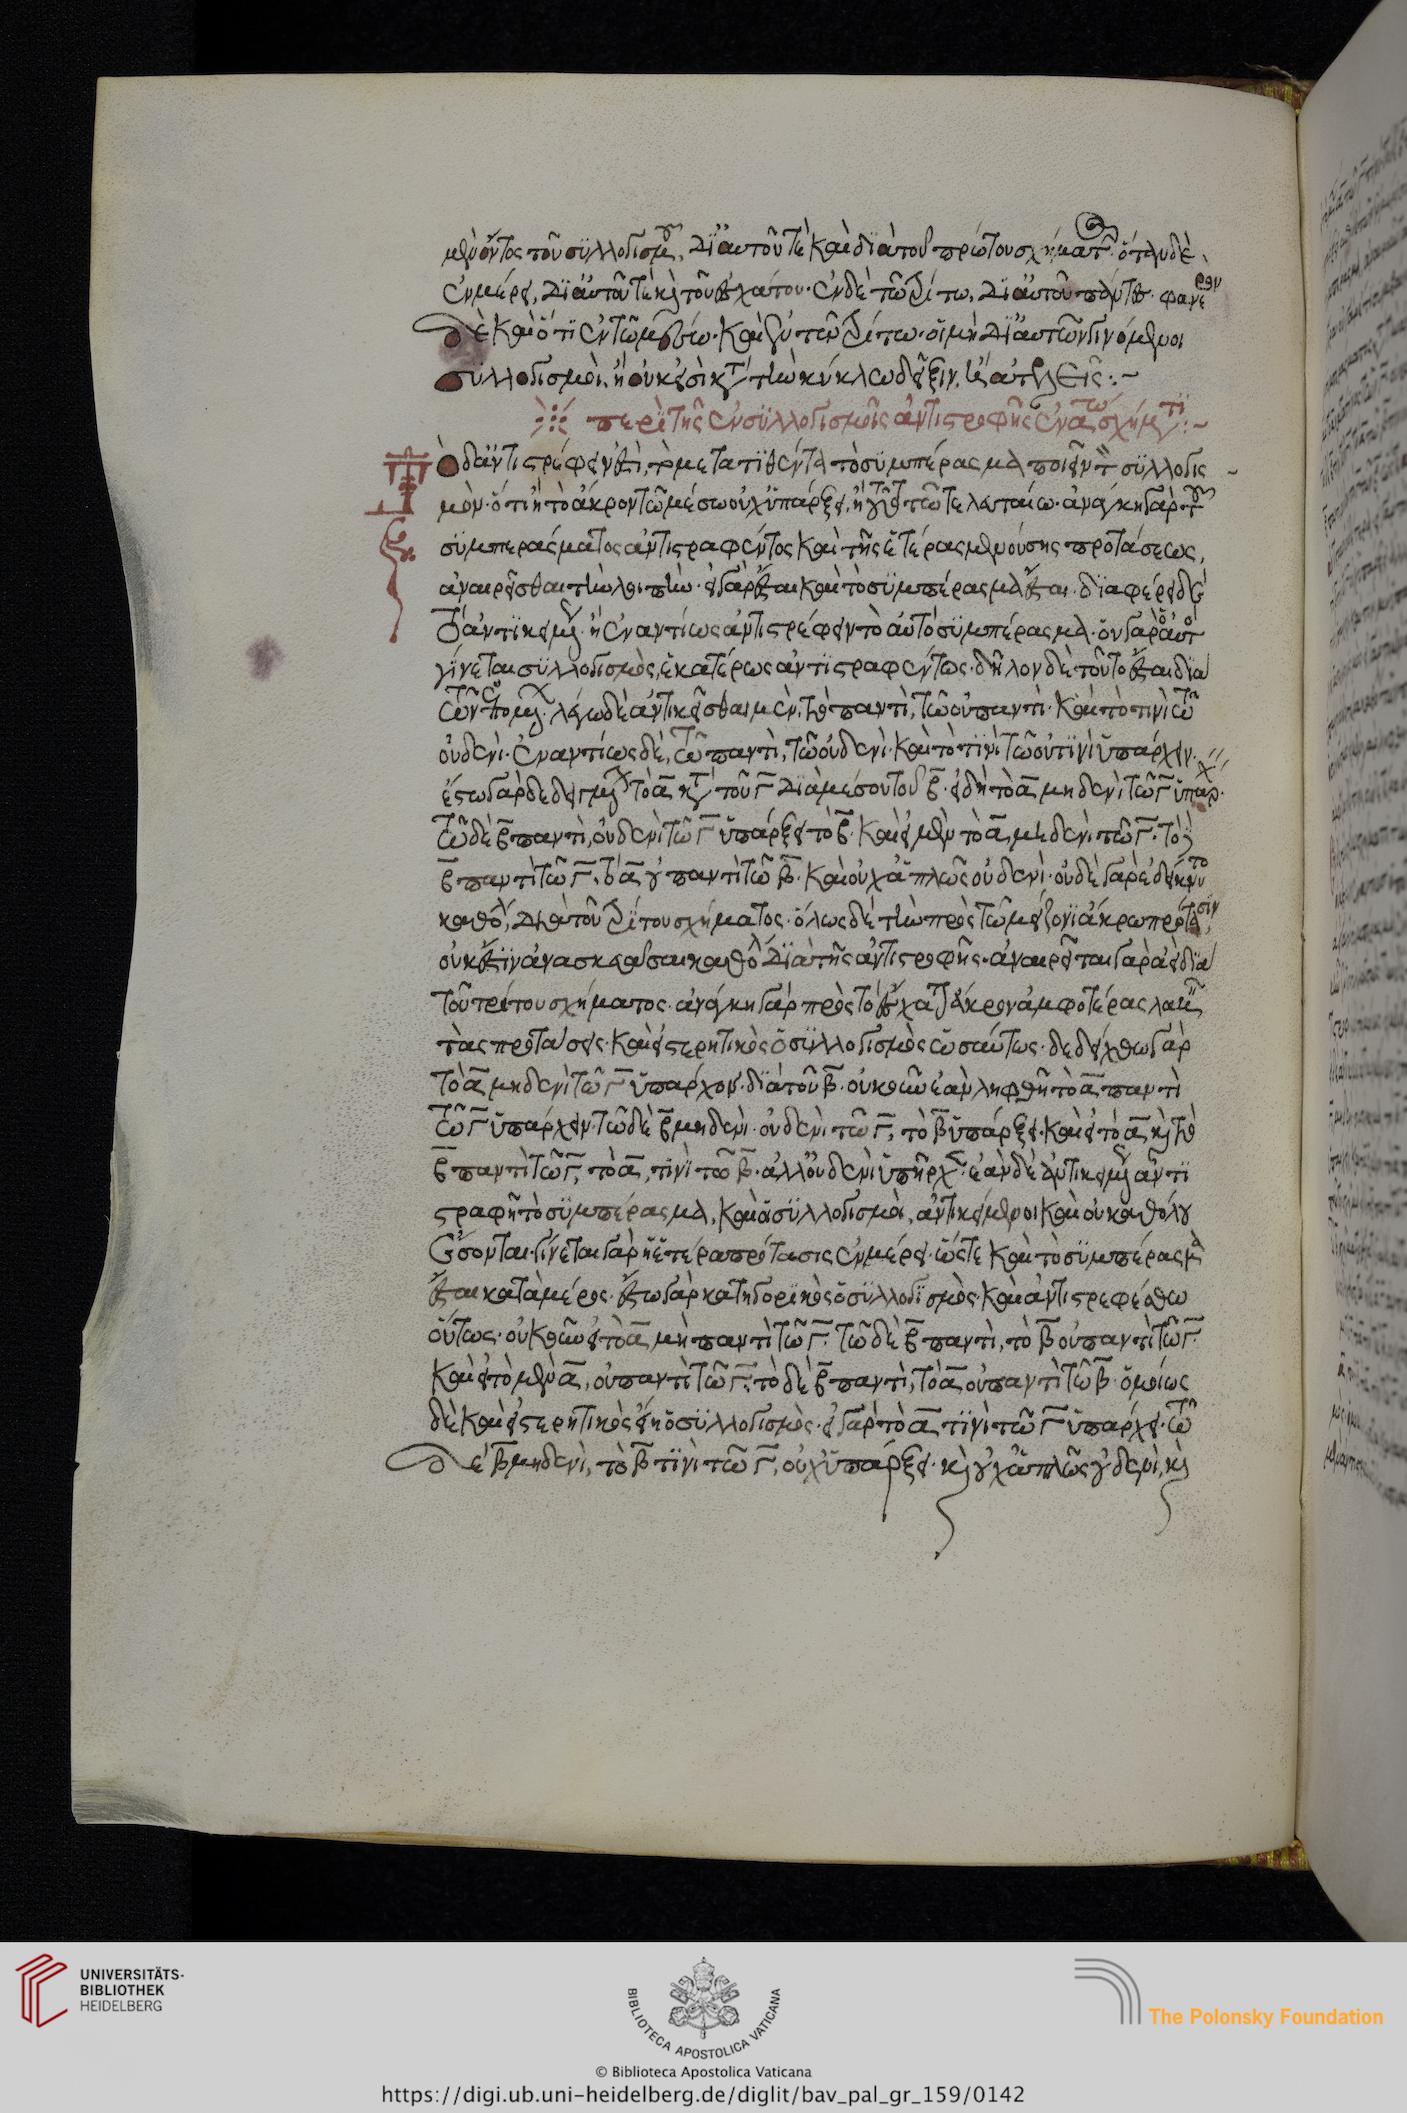 μὲν ὄντος τοῦ συλλογισμοῦ, δι' αὐτοῦ τὲ καὶ διὰ τοῦ πρώτου σχήματος· ὅταν δὲ
ἐν μέρει, δι' αὐτοῦ τὲ καὶ τοῦ ἐσχάτου· ἐν δὲ τῶ τρίτω, δι' αὐτοῦ πάντες· φανερὸν
δὲ καὶ ὅτι ἐν τῶ μέσω καὶ ἐν τῶ τρίτω οἱ μὴ δι' αὐτῶν γινόμενοι
συλλογισμοὶ, ἢ οὐκ εἰσὶ κατὰ τὴν κύκλω δεῖξιν, ἢ ἀτελεῖς:~
περὶ τῆς ἐν συλλογισμοῖς ἀντιστροφῆς ἐν α τω σχήματι:~
Τὸ δ' ἀντιστρέφειν ἐστὶ, τὸ μετατιθέντα τὸ συμπέρασμα ποιεῖν τὸν συλλογισ
μὸν· ὅτι ἢ τὸ ἄκρον τῶ μέσω οὐχ ὑπάρξει, ἢ τοῦτο τῶ τελευταίω· ἀνάγκη γὰρ τοῦ
συμπεράσματος ἀντιστραφέντος καὶ τῆς ἑτέρας μενούσης προτάσεως,
ἀναιρεῖσθαι τὴν λοιπήν· εἰ γὰρ ἔσται καὶ τὸ συμπέρασμα ἔσται· διαφέρει δὲ
τὸ ἀντικειμένως ἢ ἐναντίως ἀντιστρέφειν τὸ αὐτὸ συμπέρασμα· οὐ γὰρ ὁ αὐτὸς
γίνεται συλλογισμὸς, ἑκατέρως ἀντιστραφέντος· δῆλον δὲ τοῦτο ἔσται διὰ
τῶν ἑπομένων· λέγω δὲ ἀντικεῖσθαι μὲν, τὸ παντὶ, τῶ οὐ παντὶ· καὶ τὸ τινὶ τῶ
οὐδενὶ· ἐναντίως δὲ, τὸ παντὶ, τῶ οὐδενὶ· καὶ τὸ τινὶ τῶ οὐ τινὶ ὑπάρχειν·
ἔστω γὰρ δεδειγμένον τὸ α κατὰ τοῦ γ διὰ μέσου τοῦ β· εἰ δὴ τὸ α μηδενὶ τῶ γ ὑπάρχ
τῶ δὲ β παντὶ, οὐδενὶ τῶ γ ὑπάρξει τὸ β· καὶ εἰ μὲν τὸ α, μηδενὶ τῶ γ· τὸ δὲ
β παντὶ τῶ γ, τὸ α οὐ παντὶ τῶ β· καὶ οὐχ ἁπλῶς οὐδενὶ· οὐ γὰρ ἐδείκνυτο
καθόλου, διὰ τοῦ τρίτου σχήματος· ὅλως δὲ τὴν πρὸς τῶ μείζονι ἄκρω πρότασιν
οὐκ ἔστιν ἀνασκευάσαι καθόλου διὰ τῆς ἀντιστροφῆς· ἀναιρεῖται γὰρ ἀεὶ διὰ
τοῦ τρίτου σχήματος· ἀνάγκη γὰρ πρὸς τὸ ἔσχατον ἄκρον ἀμφοτέρας λαβεῖν
τὰς προτάσεις· καὶ εἰ στερητικὸς ὁ συλλογισμὸς ὡσαύτως· δεδείχθω γὰρ
τὸ α μηδενὶ τῶ γ ὑπάρχον διὰ τοῦ β· οὐκοῦν ἐὰν ληφθῆ τὸ α παντὶ
τῶ γ ὑπάρχειν· τῶ δὲ β μηδενὶ· οὐδενὶ τῶ γ, τὸ β ὑπάρξει· καὶ εἰ τὸ α καὶ τὸ
β παντὶ τῶ γ, τὸ α, τινὶ τῶ β· ἀλλ' οὐδενὶ ὑπῆρχεν· ἐὰν δὲ ἀντικειμένως ἀντι
στραφῆ τὸ συμπέρασμα, καὶ οἱ συλλογισμοὶ, ἀντικείμενοι καὶ οὐ καθόλου
ἔσονται· γίνεται γὰρ ἡ ἑτέρα πρότασις ἐν μέρει· ὥστε καὶ τὸ συμπέρασμα
ἔσται κατὰ μέρος· ἔστω γὰρ κατηγορικὸς ὁ συλλογισμὸς· καὶ ἀντιστρεφέσθω
οὕτως· οὐκοῦν εἰ τὸ α μὴ παντὶ τῶ γ· τῶ δὲ β παντὶ, τὸ β οὐ παντὶ τῶ γ·
καὶ εἰ τὸ μὲν α, οὐ παντὶ τῶ γ, τὸ δὲ β παντὶ, τὸ α οὐ παντὶ τῶ β· ὁμοίως
δὲ καὶ εἰ στερητικὸς εἴη ὁ συλλογισμὸς· εἰ γὰρ τὸ α τινὶ τῶ γ ὑπάρχει· τῶ
δὲ β μηδενὶ, τὸ β τινὶ τῶ γ, οὐχ ὑπάρξει· καὶ οὐχ ἁπλῶς οὐδενὶ, καὶ
UNIVERSITÄTS-
BIBLIOTHEK
HEIDELBERG
BIBLIOTECA APOSTOLICA VATICANA
The Polonsky Foundation
© Biblioteca Apostolica Vaticana
https://digi.ub.uni-heidelberg.de/diglit/bav_pal_gr_159/0142